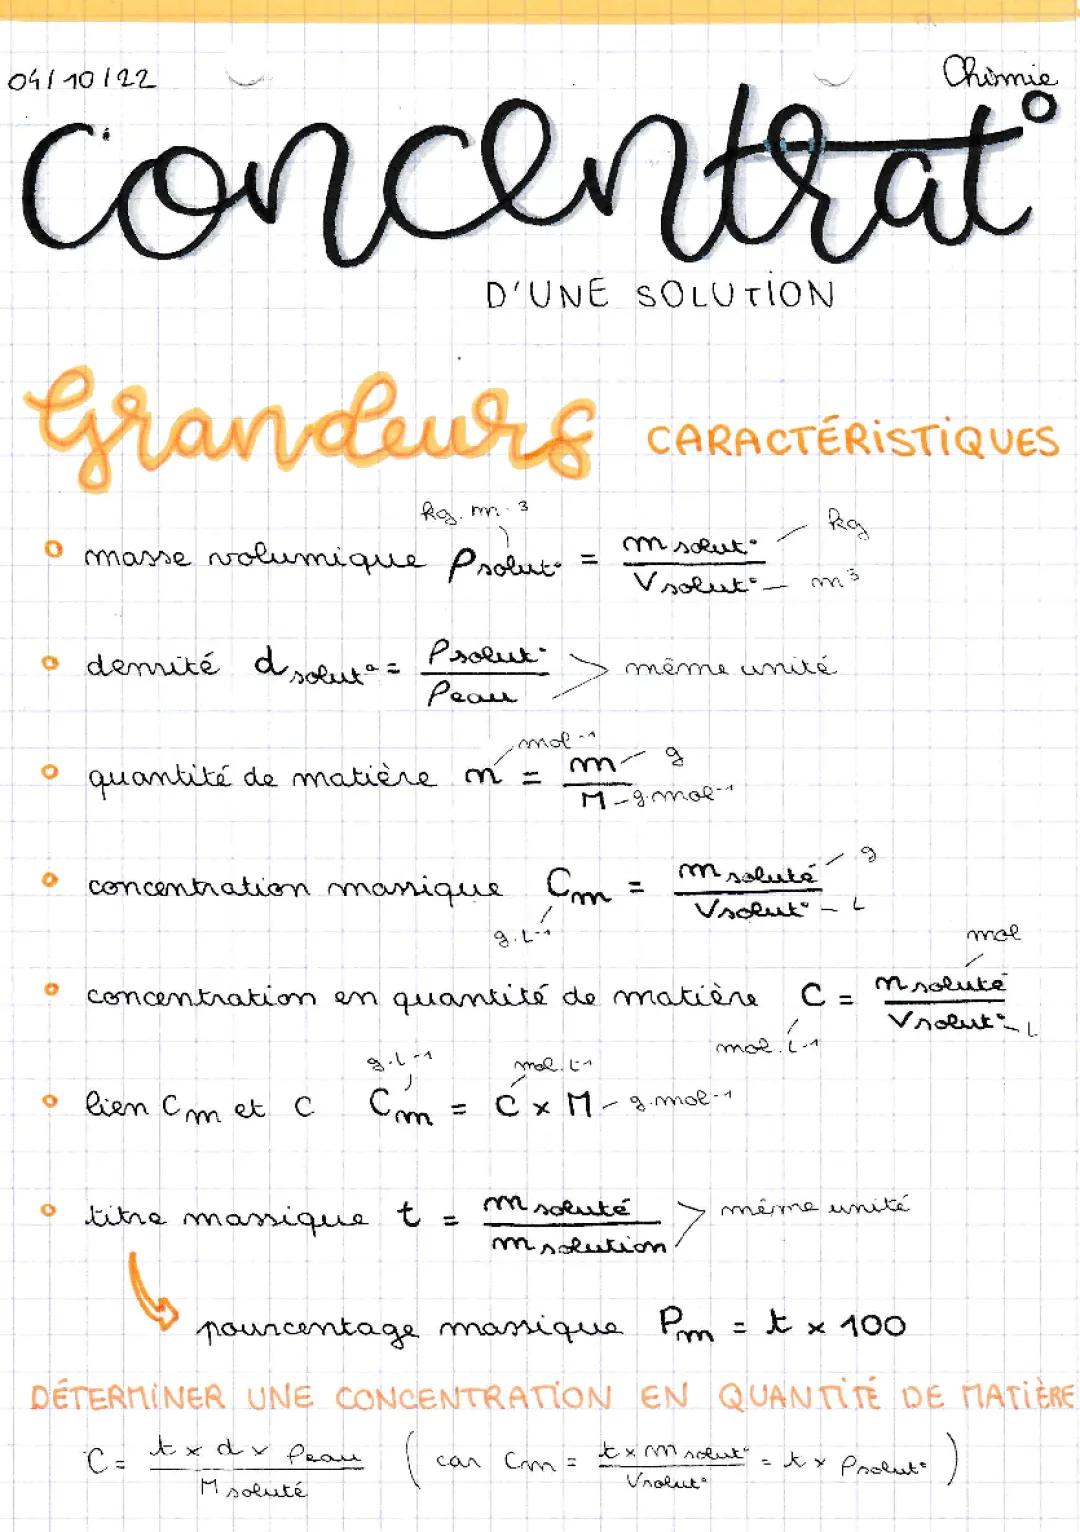 04/10/22 Chimie
Concentrat°
D'UNE SOLUTION
Grandeurs CARACTÉRISTIQUES
kg.m-3
masse volumique ρsolut° = m solut° / V solut° kg m3
densité d solut° = ρsolut° / ρeau > même unité
mol-1
quantité de matière n = m / M g g.mol-1
concentration massique Cm = m soluté / V solut° g L
g.L-1
mol
concentration en quantité de matière C = n soluté / V solut° L
mol.L-1
g.L-1 mol.L-1
lien Cm et C Cm = C x M g.mol-1
titre massique t = m soluté / m solution > même unité
pourcentage massique Pm = t x 100
DÉTERMINER UNE CONCENTRATION EN QUANTITÉ DE MATIÈRE
C = t x d x ρeau / M soluté ( car Cm = t x m solut° / V solut° = t x ρsolut° )